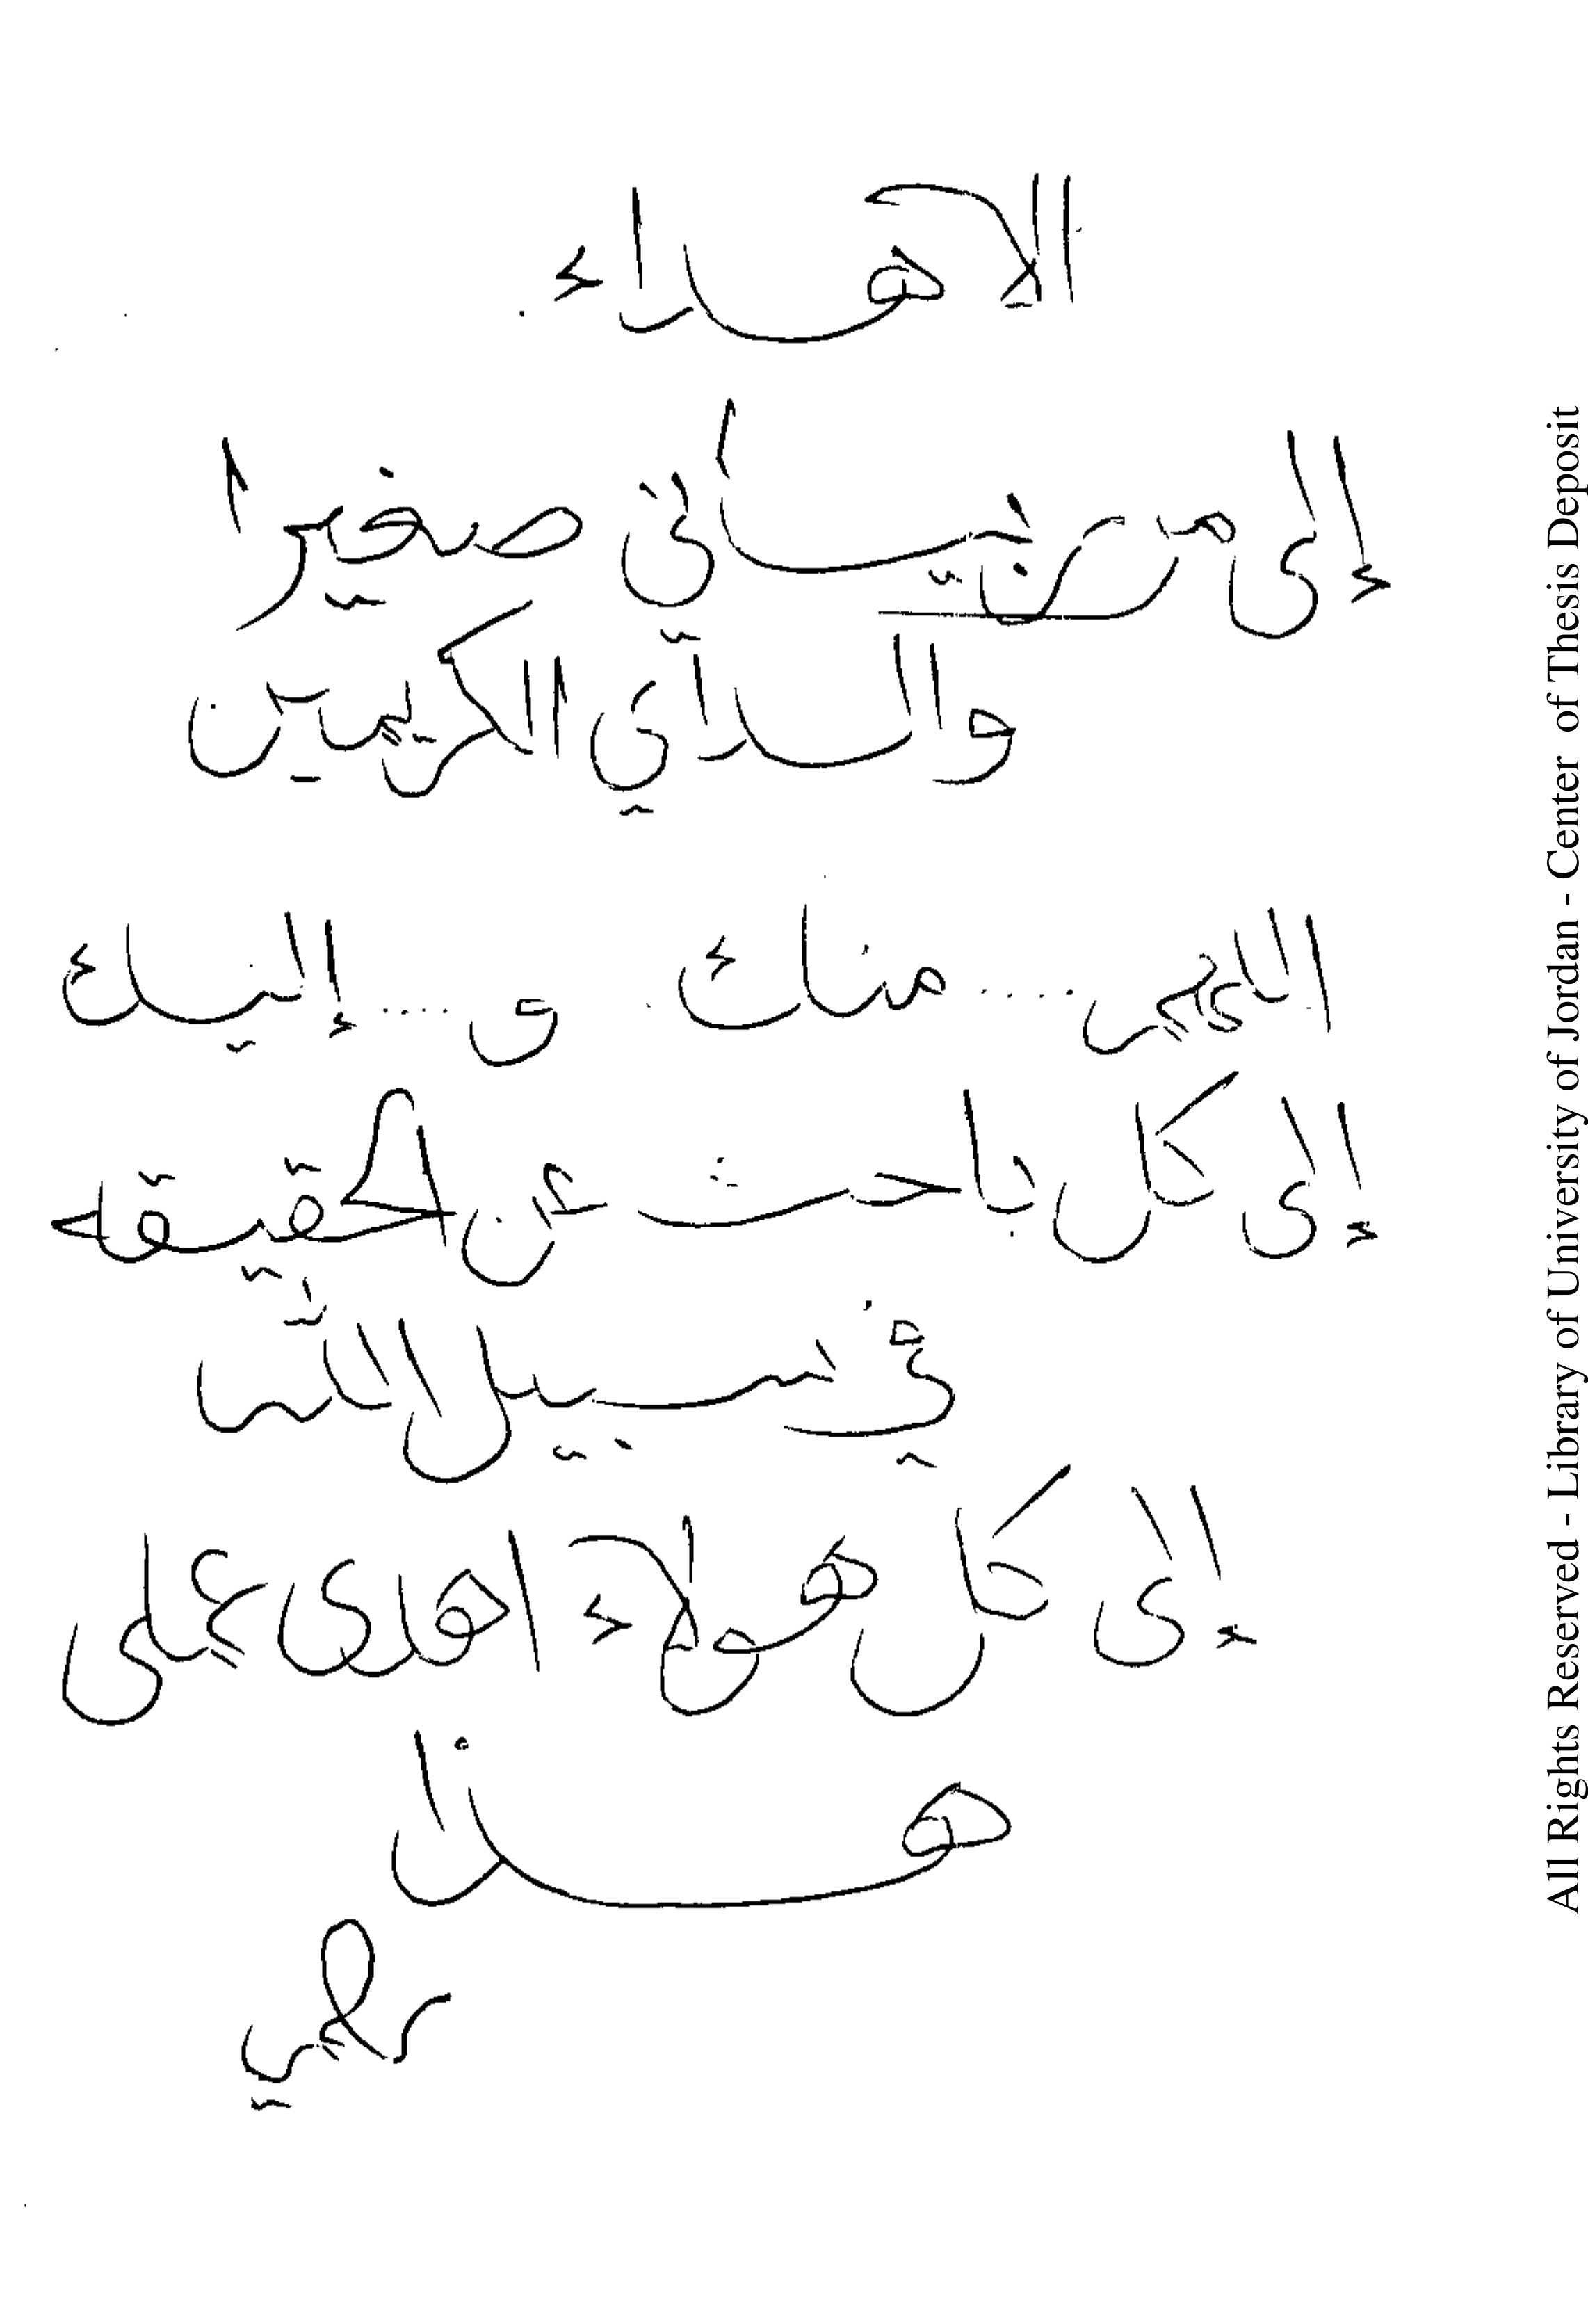 الاهداء
إلى من ربياني صغيرا
والداي الكريمين
اللهم .... منك و .... إليك
إلى كل باحث عن الحقيقه
في سبيل الله
إلى كل هولاء اهدى عملى
هذا
All Rights Reserved - Library of University of Jordan - Center of Thesis Deposit